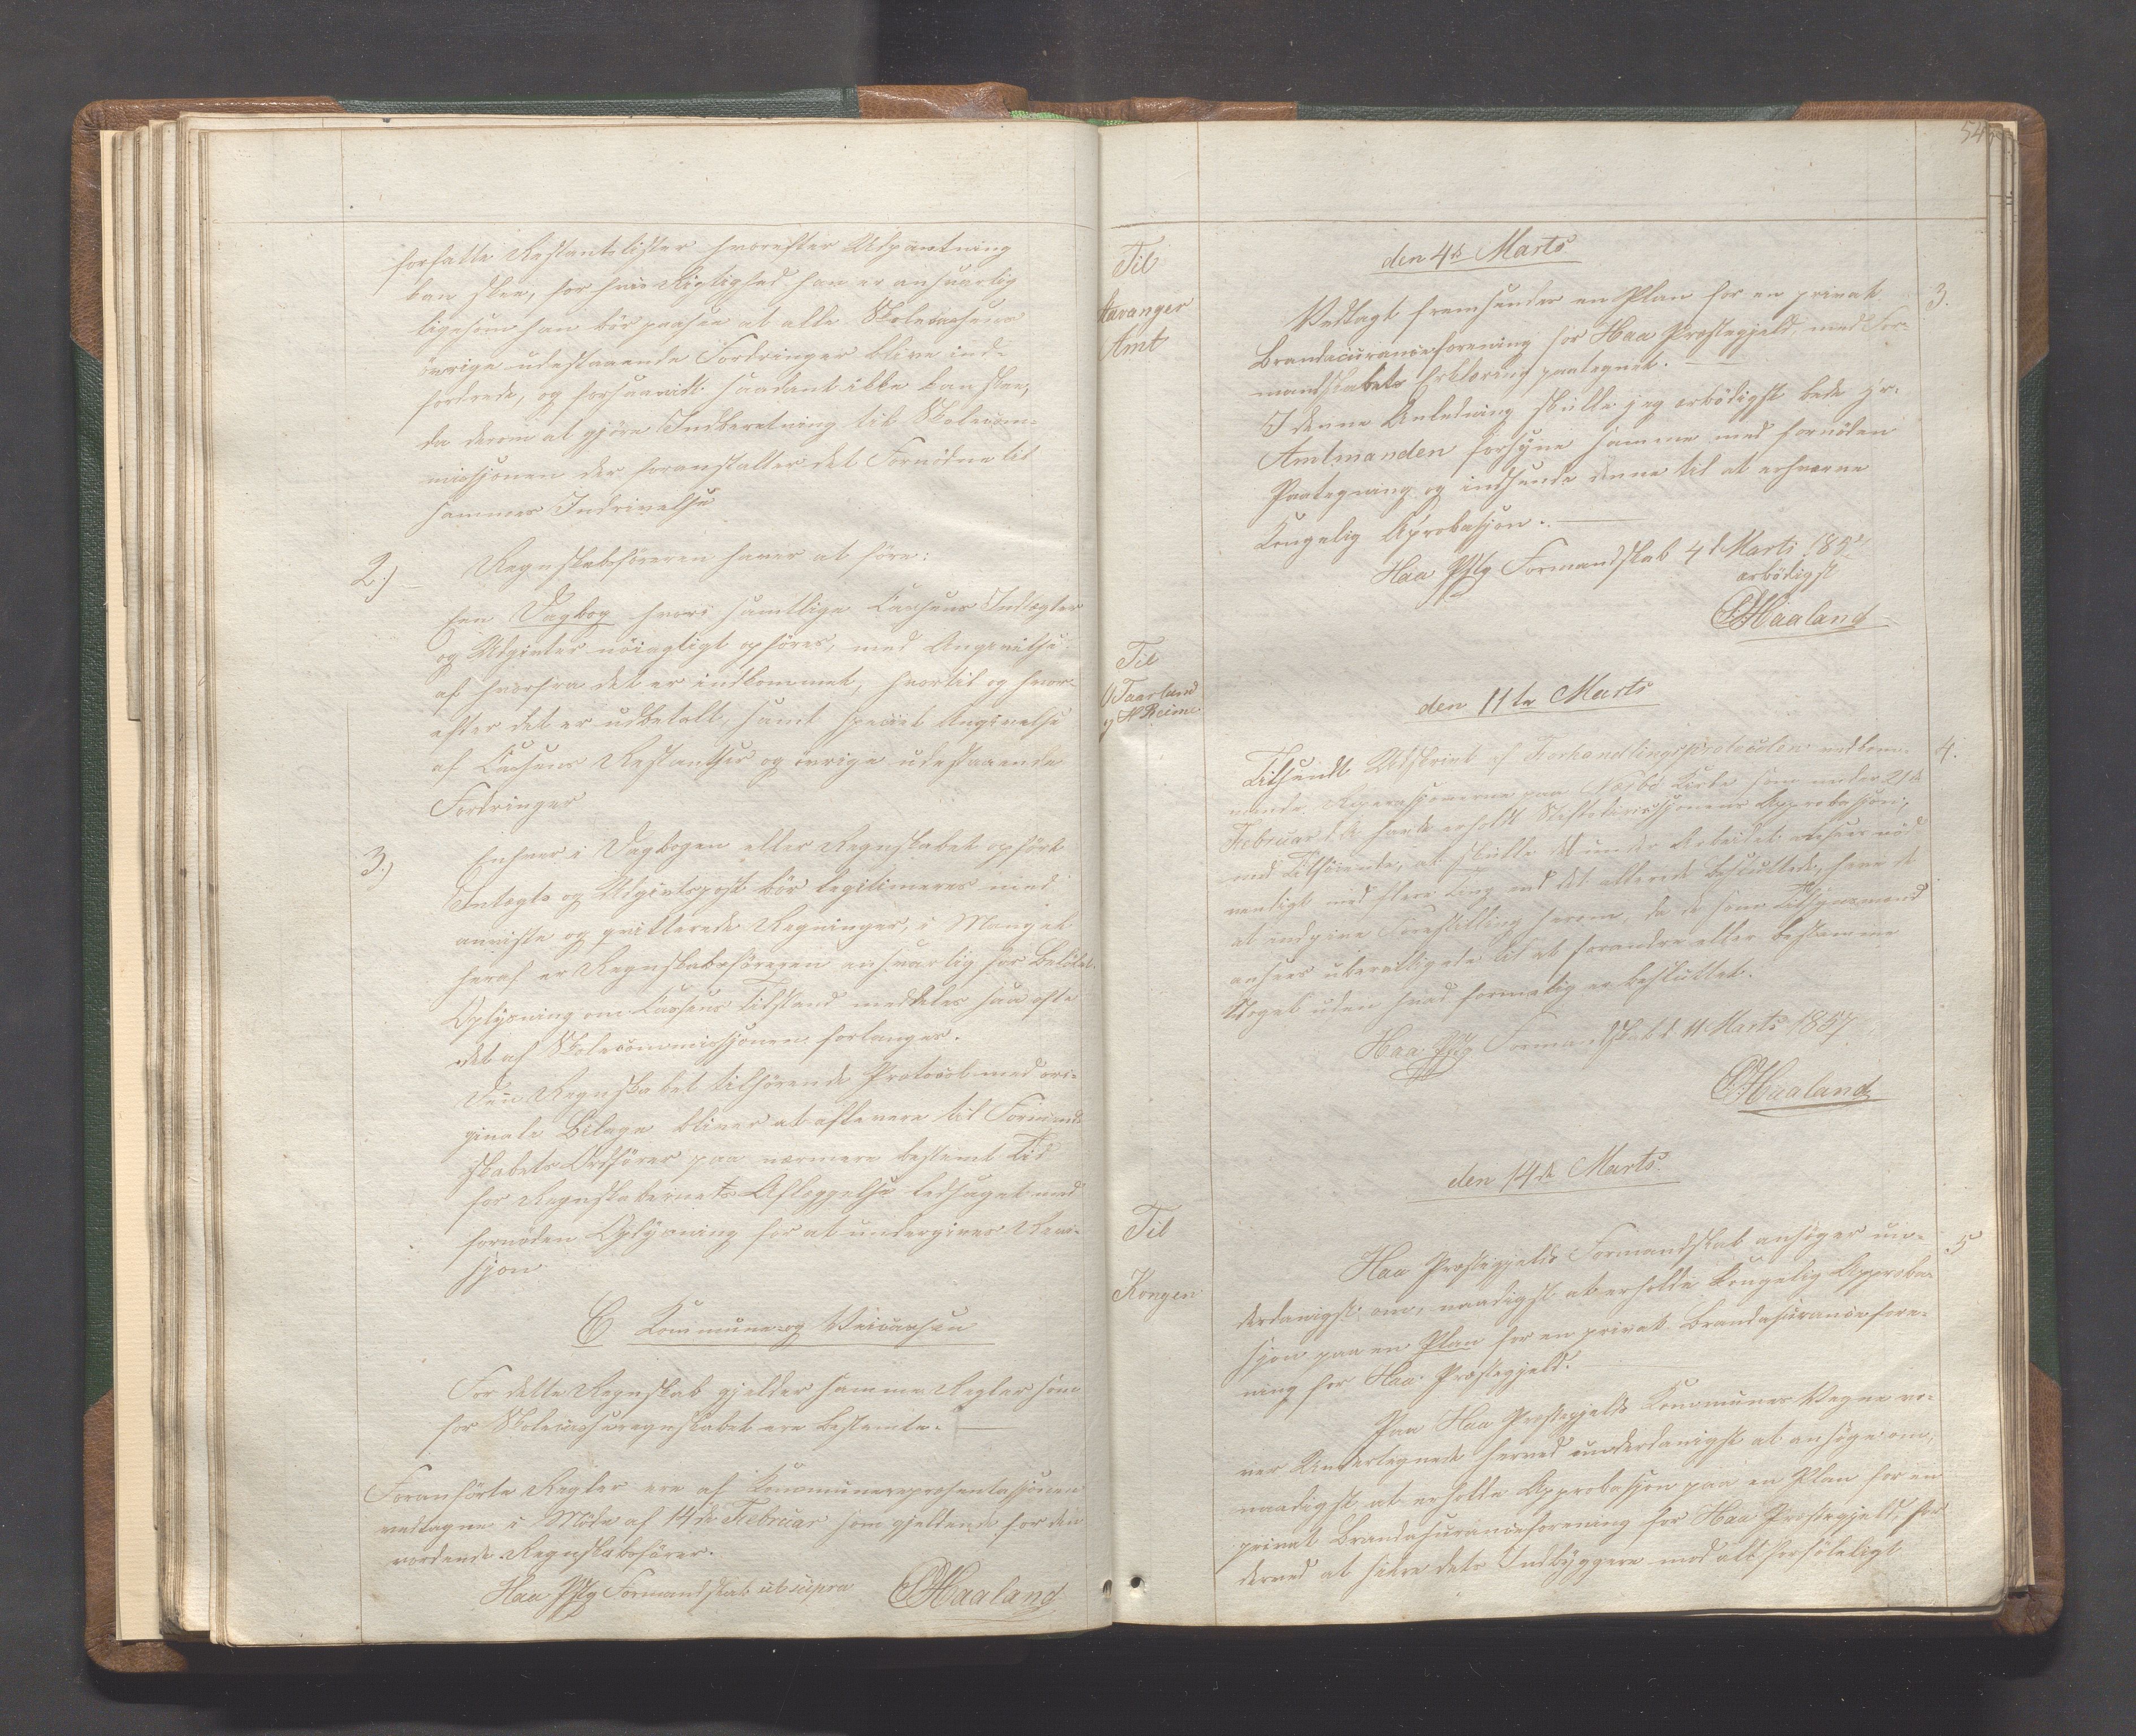 forfatte Restantslister hvorefter Udpantning
kan skee, for hvis Rigtighed han er ansvarlig
ligesom han bør paasee at alle Skolecassens
øvrige udestaaende Fordringer blive ind-
fordrede, og forsaavidt saadant ikke kan skee,
da derom at gjøre Indberetning til Skolecom-
missjonen der foranstalter det Fornødne til
sammes Indrivelse
2.) Regnskabsføreren haver at føre:
En Dagbog hvori samtlige Cassens Indtægter
og Udgivter nøiagtigt opføres, med Angivelse
af hvorfra det er indkommet, hvortil og hvor-
efter det er udbetalt, samt speciel Angivelse
af Cassens Restantser og øvrige udestaaende
Fordringer
3.) Enhver i Dagbogen eller Regnskabet opført
Indtægts og Udgivtspost bør legitimeres med
anviste og qvitterede Regninger, i Mangel
heraf er Regnskabsføreren ansvarlig for Beløbet.
Oplysning om Cassens Tilstand meddeles saa ofte
det af Skolecommissjonen forlanges.
Den Regnskabet tilhørende Protocol med ori-
ginale Bilage bliver at aflevere til Formand-
skabets Ordfører paa nærmere bestemt Tid
for Regnskabernes Aflæggelse ledsaget med
fornøden Oplysning for at undergives Revi-
sjon
C Kommune og Veicassen
For dette Regnskab gjelder samme Regler som
for Skolecasseregnskabet ere bestemte.
Foranførte Regler ere af Kommunerepresentasjonen
vedtagne i Møde af 14de Februar som gjeldende for den
vordende Regnskabsfører.
Haa Pstg Formandskab ut supra OHaaland
54
Til
Stavanger
Amt
den 4de Marts
3.
Vedlagt fremsendes en Plan for en privat
Brandassuranceforening for Haa Præstegjeld, med For-
mandskabets Erklæring paategnet.
I denne Anledning skulle jeg ærbødigst bede Hr.
Amtmanden forsyne samme med fornøden
Paategning og indsende denne til at erhverve
Kongelig Aprobasjon.
Haa Pstg Formandskab 4d Marts 1857
ærbødigst
OHaaland
Til
O Taarland
og H Reime
den 11te Marts
4.
Tilsendt Udskrivt af Forhandlingsprotocolen vedkom-
mende Reperasjonerne paa Næsbø Kirke som under 21de
Februar d.A. havde erholdt Stiftdirecsjonens Approbasjon,
med Tilføiende, at skulle det under Arbeidet ansees nød-
vendigt med flere Ting end det allerede besluttede, have de
at indgive Forestilling herom, da de som Tilsynsmænd
ansees uberettigede til at forandre eller bestemme
Noget uden hvad formelig er besluttet.
Haa Pstg Formandskab d. 11 Marts 1857
OHaaland
Til
Kongen
den 14de Marts.
5
Haa Præstegjelds Formandskab ansøger un-
derdanigst om, naadigst at erholde Kongelig Approba-
sjon paa en Plan for en privat Brandassurancefore-
ning for Haa Præstegjeld.
Paa Haa Præstegjelds Kommunes Vegne vo-
ver Undertegnede herved underdanigst at ansøge om,
naadigst at erholde Approbasjon paa en Plan for en
privat Brandassuranceforening for Haa Præstegjeld, for
derved at sikre dets Indbyggere mod alt forføleligt